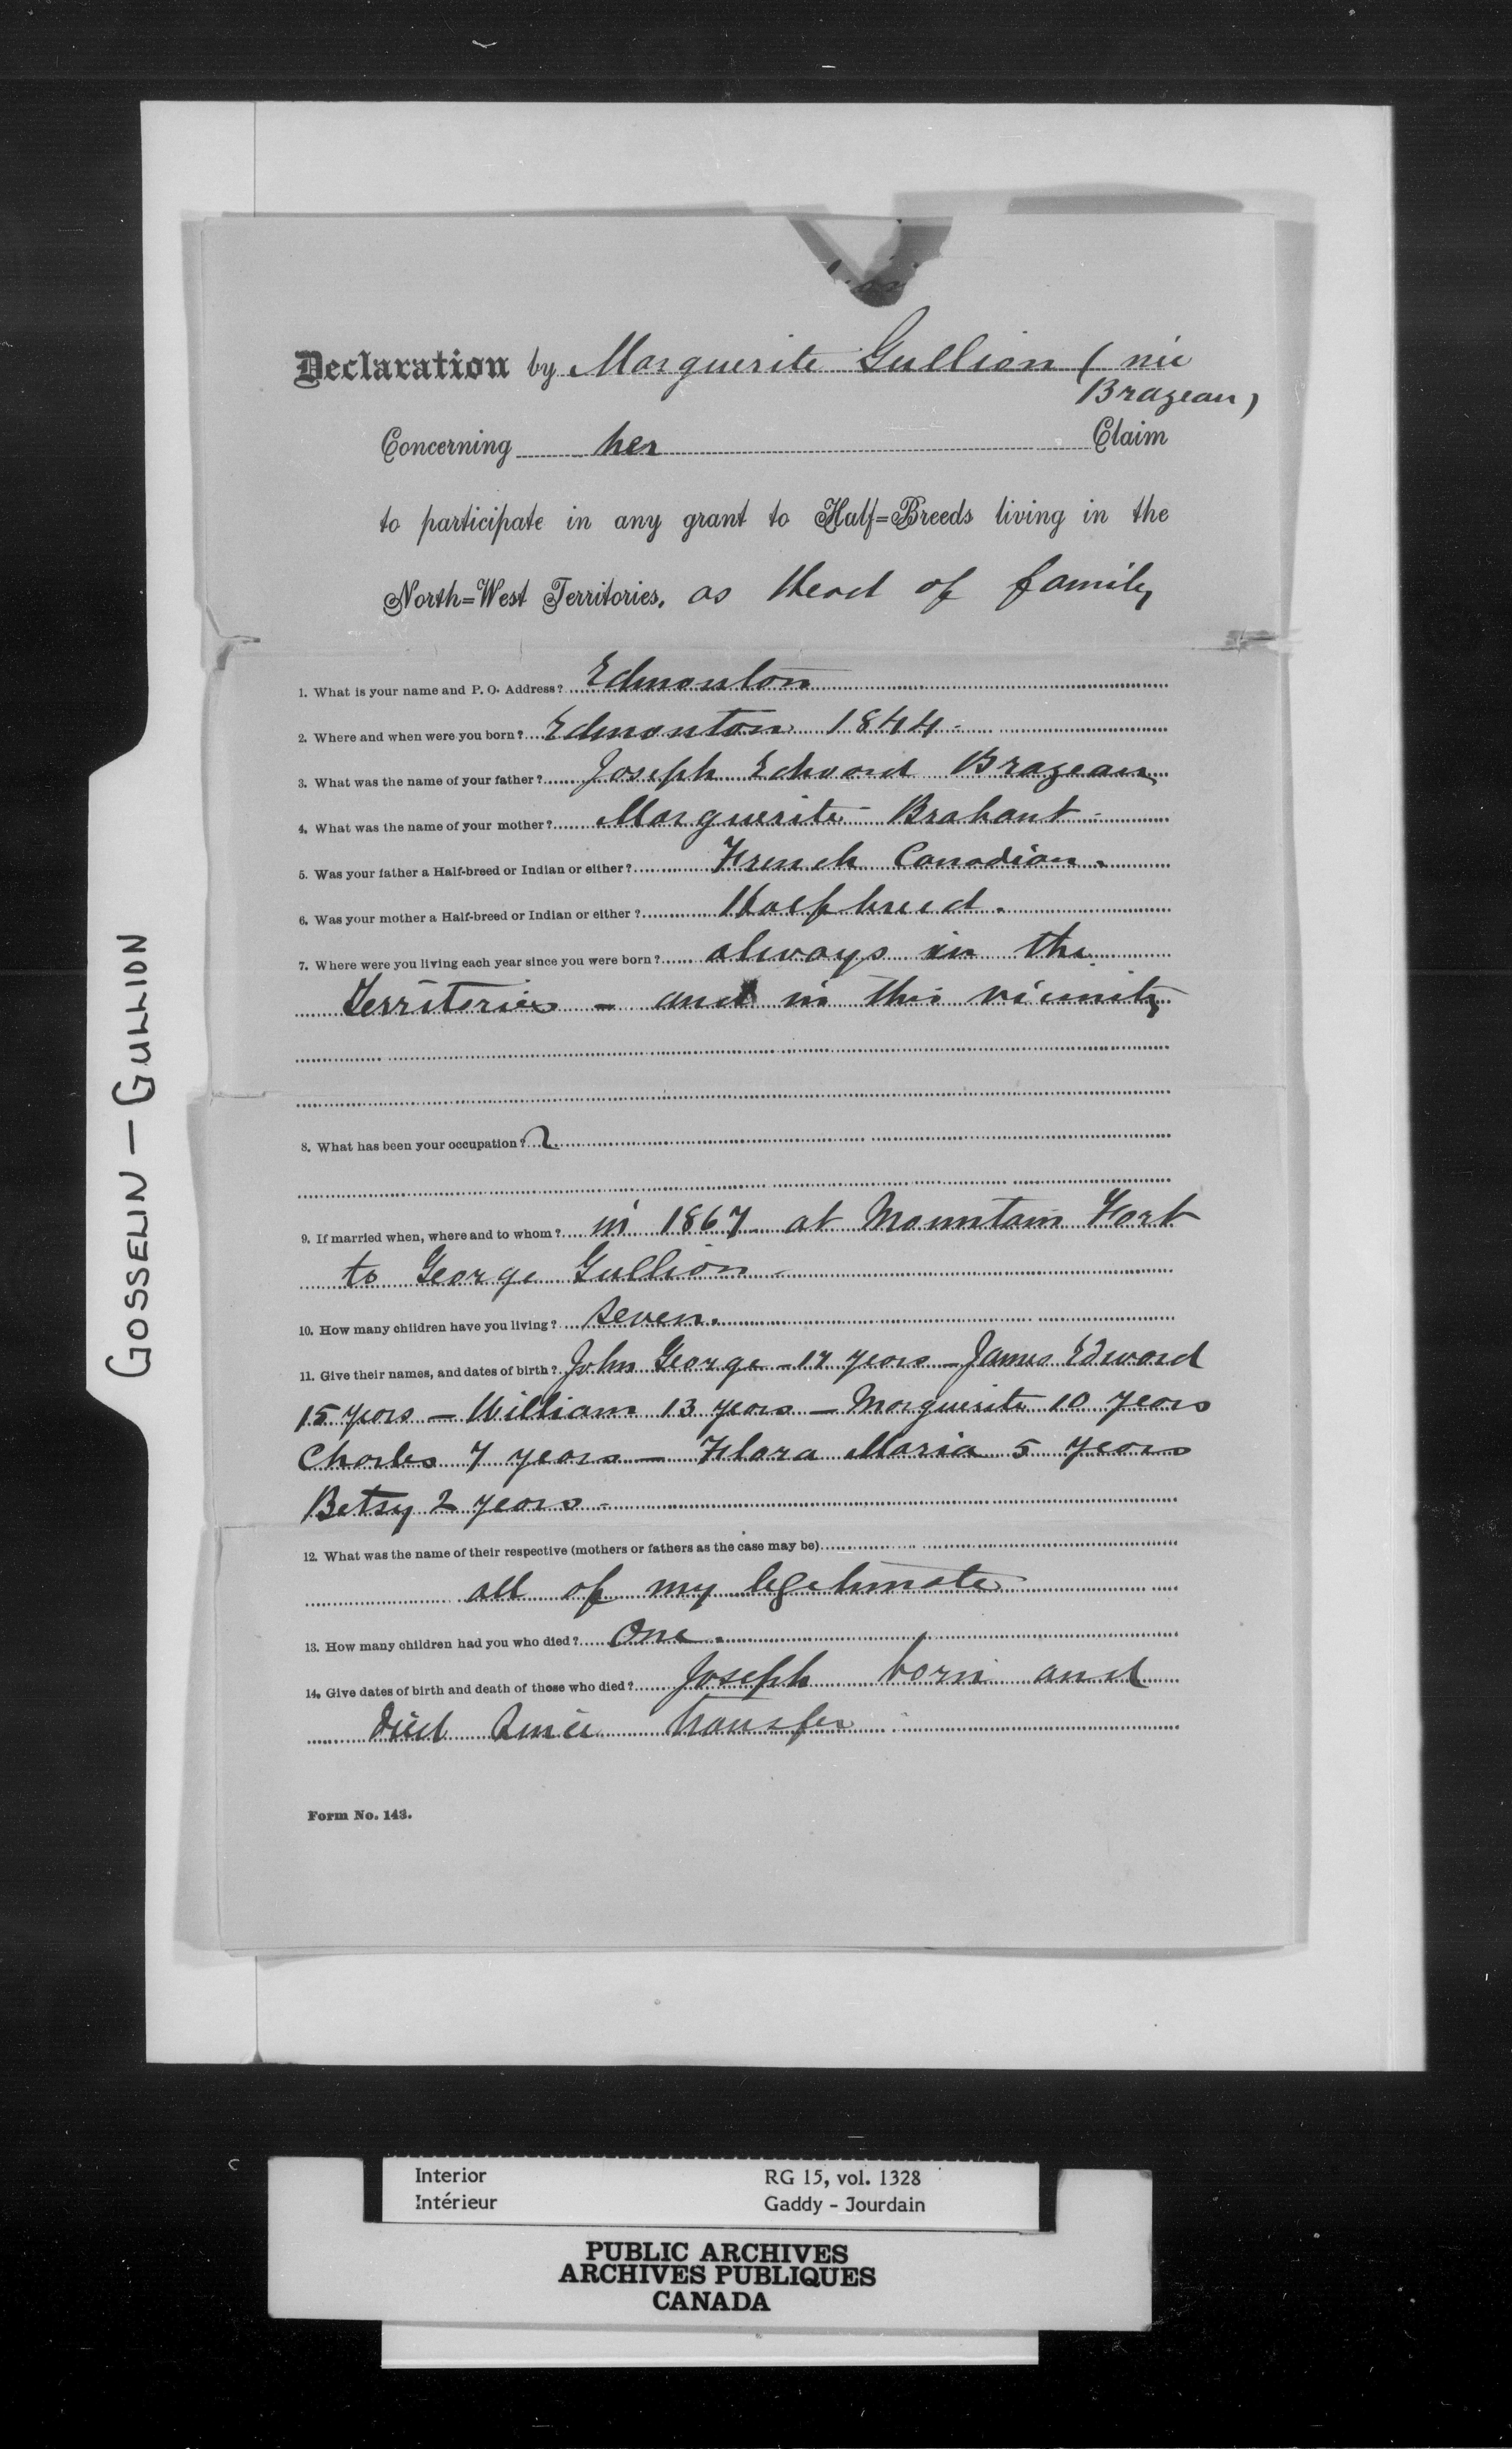 Declaration by Marguerite Gullion ( née
Brazeau )
Concerning her Claim
to participate in any grant to Half=Breeds living in the
North=West Territories, as Head of family
1. What is your name and P. O. Address? Edmonton
2. Where and when were you born? Edmonton 1844 -
3. What was the name of your father? Joseph Edward Brazeau
4. What was the name of your mother? Marguerite Brabant -
5. Was your father a Half-breed or Indian or either? French Canadian.
6. Was your mother a Half-breed or Indian or either? Halfbreed.
7. Where were you living each year since you were born? always in the
Territories - and in this vicinity
8. What has been your occupation?
9. If married when, where and to whom? in 1867 at Mountain Fort
to George Gullion -
10. How many children have you living? Seven.
11. Give their names, and dates of birth? John George - 17 years - James Edward
15 years - William 13 years - Marguerite 10 years
Charles 7 years - Flora Maria 5 years
Betsy 2 years -
12. What was the name of their respective (mothers or fathers as the case may be)
all of my legitimate
13. How many children had you who died? One.
14. Give dates of birth and death of those who died? Joseph born and
died since transfer
Form No. 143.
GOSSELIN - GULLION
Interior RG 15, vol. 1328
Intérieur Gaddy - Jourdain
PUBLIC ARCHIVES
ARCHIVES PUBLIQUES
CANADA